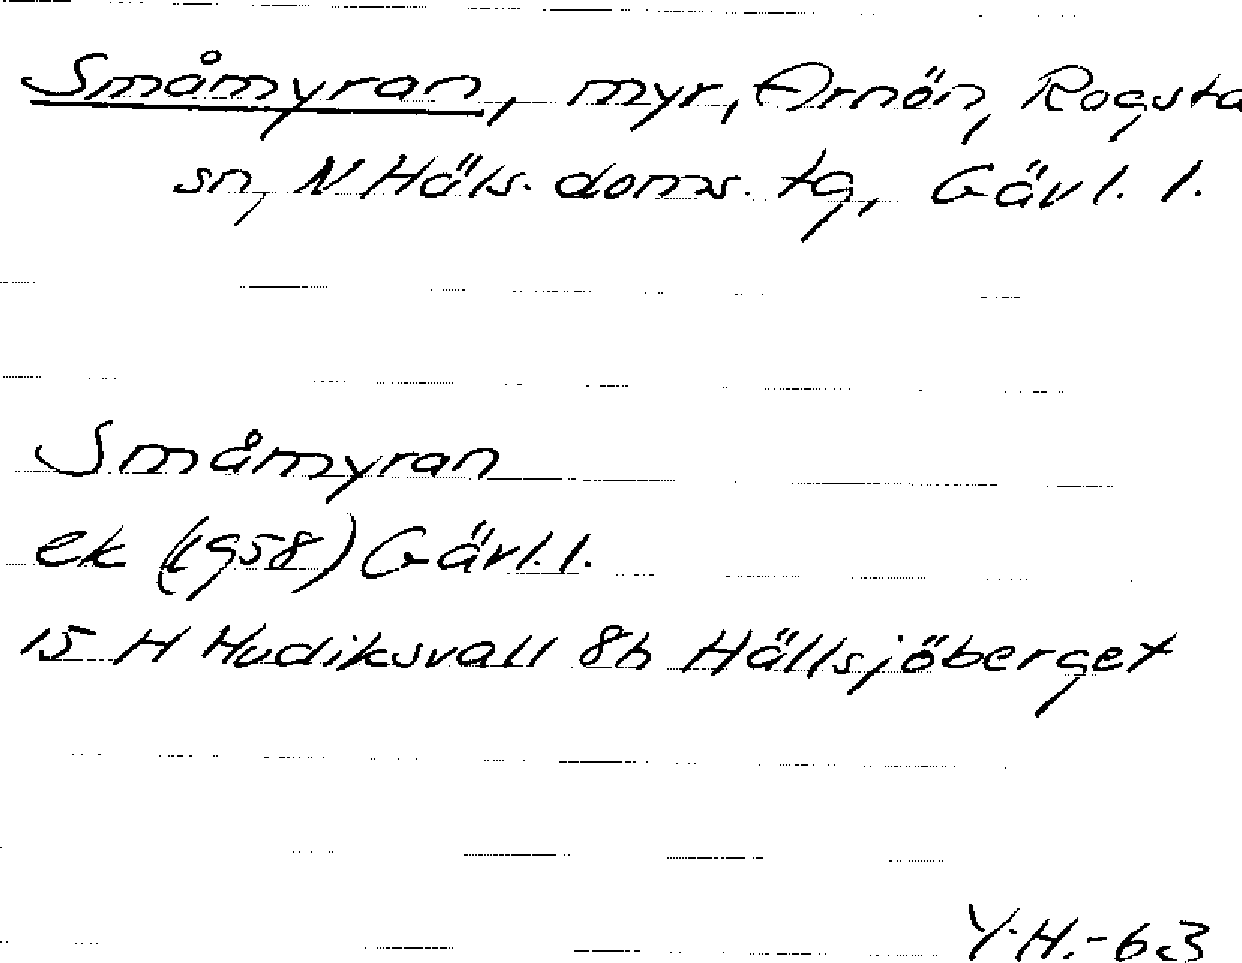 Småmyran, myr, Arnön, Rogsta
sn, N Häls. doms. tg, Gävl. l.
Småmyran
ek (1958) Gävl. l.
15 H Hudiksvall 8h Hällsjöberget
Y.H.-63